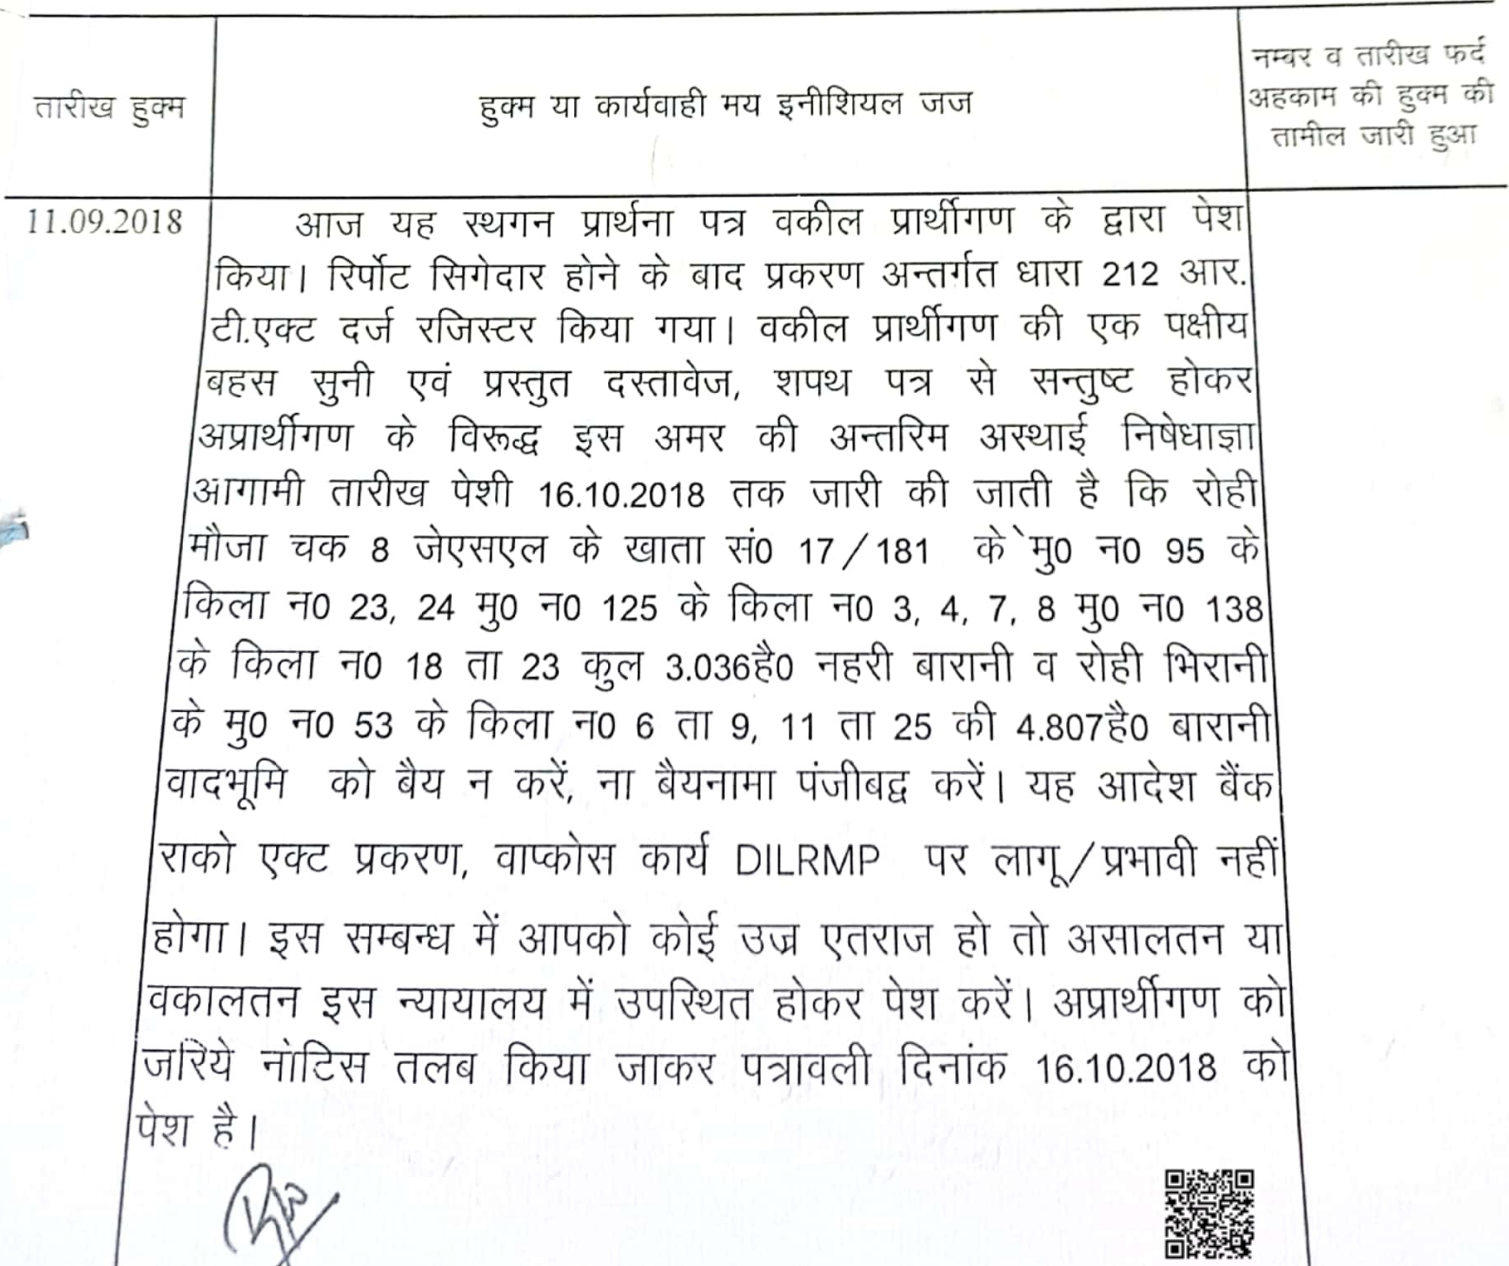 तारीख हुक्म
हुक्म या कार्यवाही मय इनीशियल जज
नम्बर व तारीख फर्द
अहकाम की हुक्म की
तामील जारी हुआ
11.09.2018
आज यह स्थगन प्रार्थना पत्र वकील प्रार्थीगण के द्वारा पेश
किया। रिर्पोट सिगेदार होने के बाद प्रकरण अन्तर्गत धारा 212 आर.
टी.एक्ट दर्ज रजिस्टर किया गया। वकील प्रार्थीगण की एक पक्षीय
बहस सुनी एवं प्रस्तुत दस्तावेज, शपथ पत्र से सन्तुष्ट होकर
अप्रार्थीगण के विरूद्ध इस अमर की अन्तरिम अस्थाई निषेधाज्ञा
आगामी तारीख पेशी 16.10.2018 तक जारी की जाती है कि रोही
मौजा चक 8 जेएसएल के खाता सं0 17/181 के मु0 न0 95 के
किला न0 23, 24 मु0 न0 125 के किला न0 3, 4, 7, 8 मु0 न0 138
के किला न0 18 ता 23 कुल 3.036है0 नहरी बारानी व रोही भिरानी
के मु0 न0 53 के किला न0 6 ता 9, 11 ता 25 की 4.807है0 बारानी
वादभूमि को बैय न करें, ना बैयनामा पंजीबद्व करें। यह आदेश बैंक
राको एक्ट प्रकरण, वाप्कोस कार्य DILRMP पर लागू/प्रभावी नहीं
होगा। इस सम्बन्ध में आपको कोई उज्र एतराज हो तो असालतन या
वकालतन इस न्यायालय में उपस्थित होकर पेश करें। अप्रार्थीगण को
जरिये नोटिस तलब किया जाकर पत्रावली दिनांक 16.10.2018 को
पेश है।